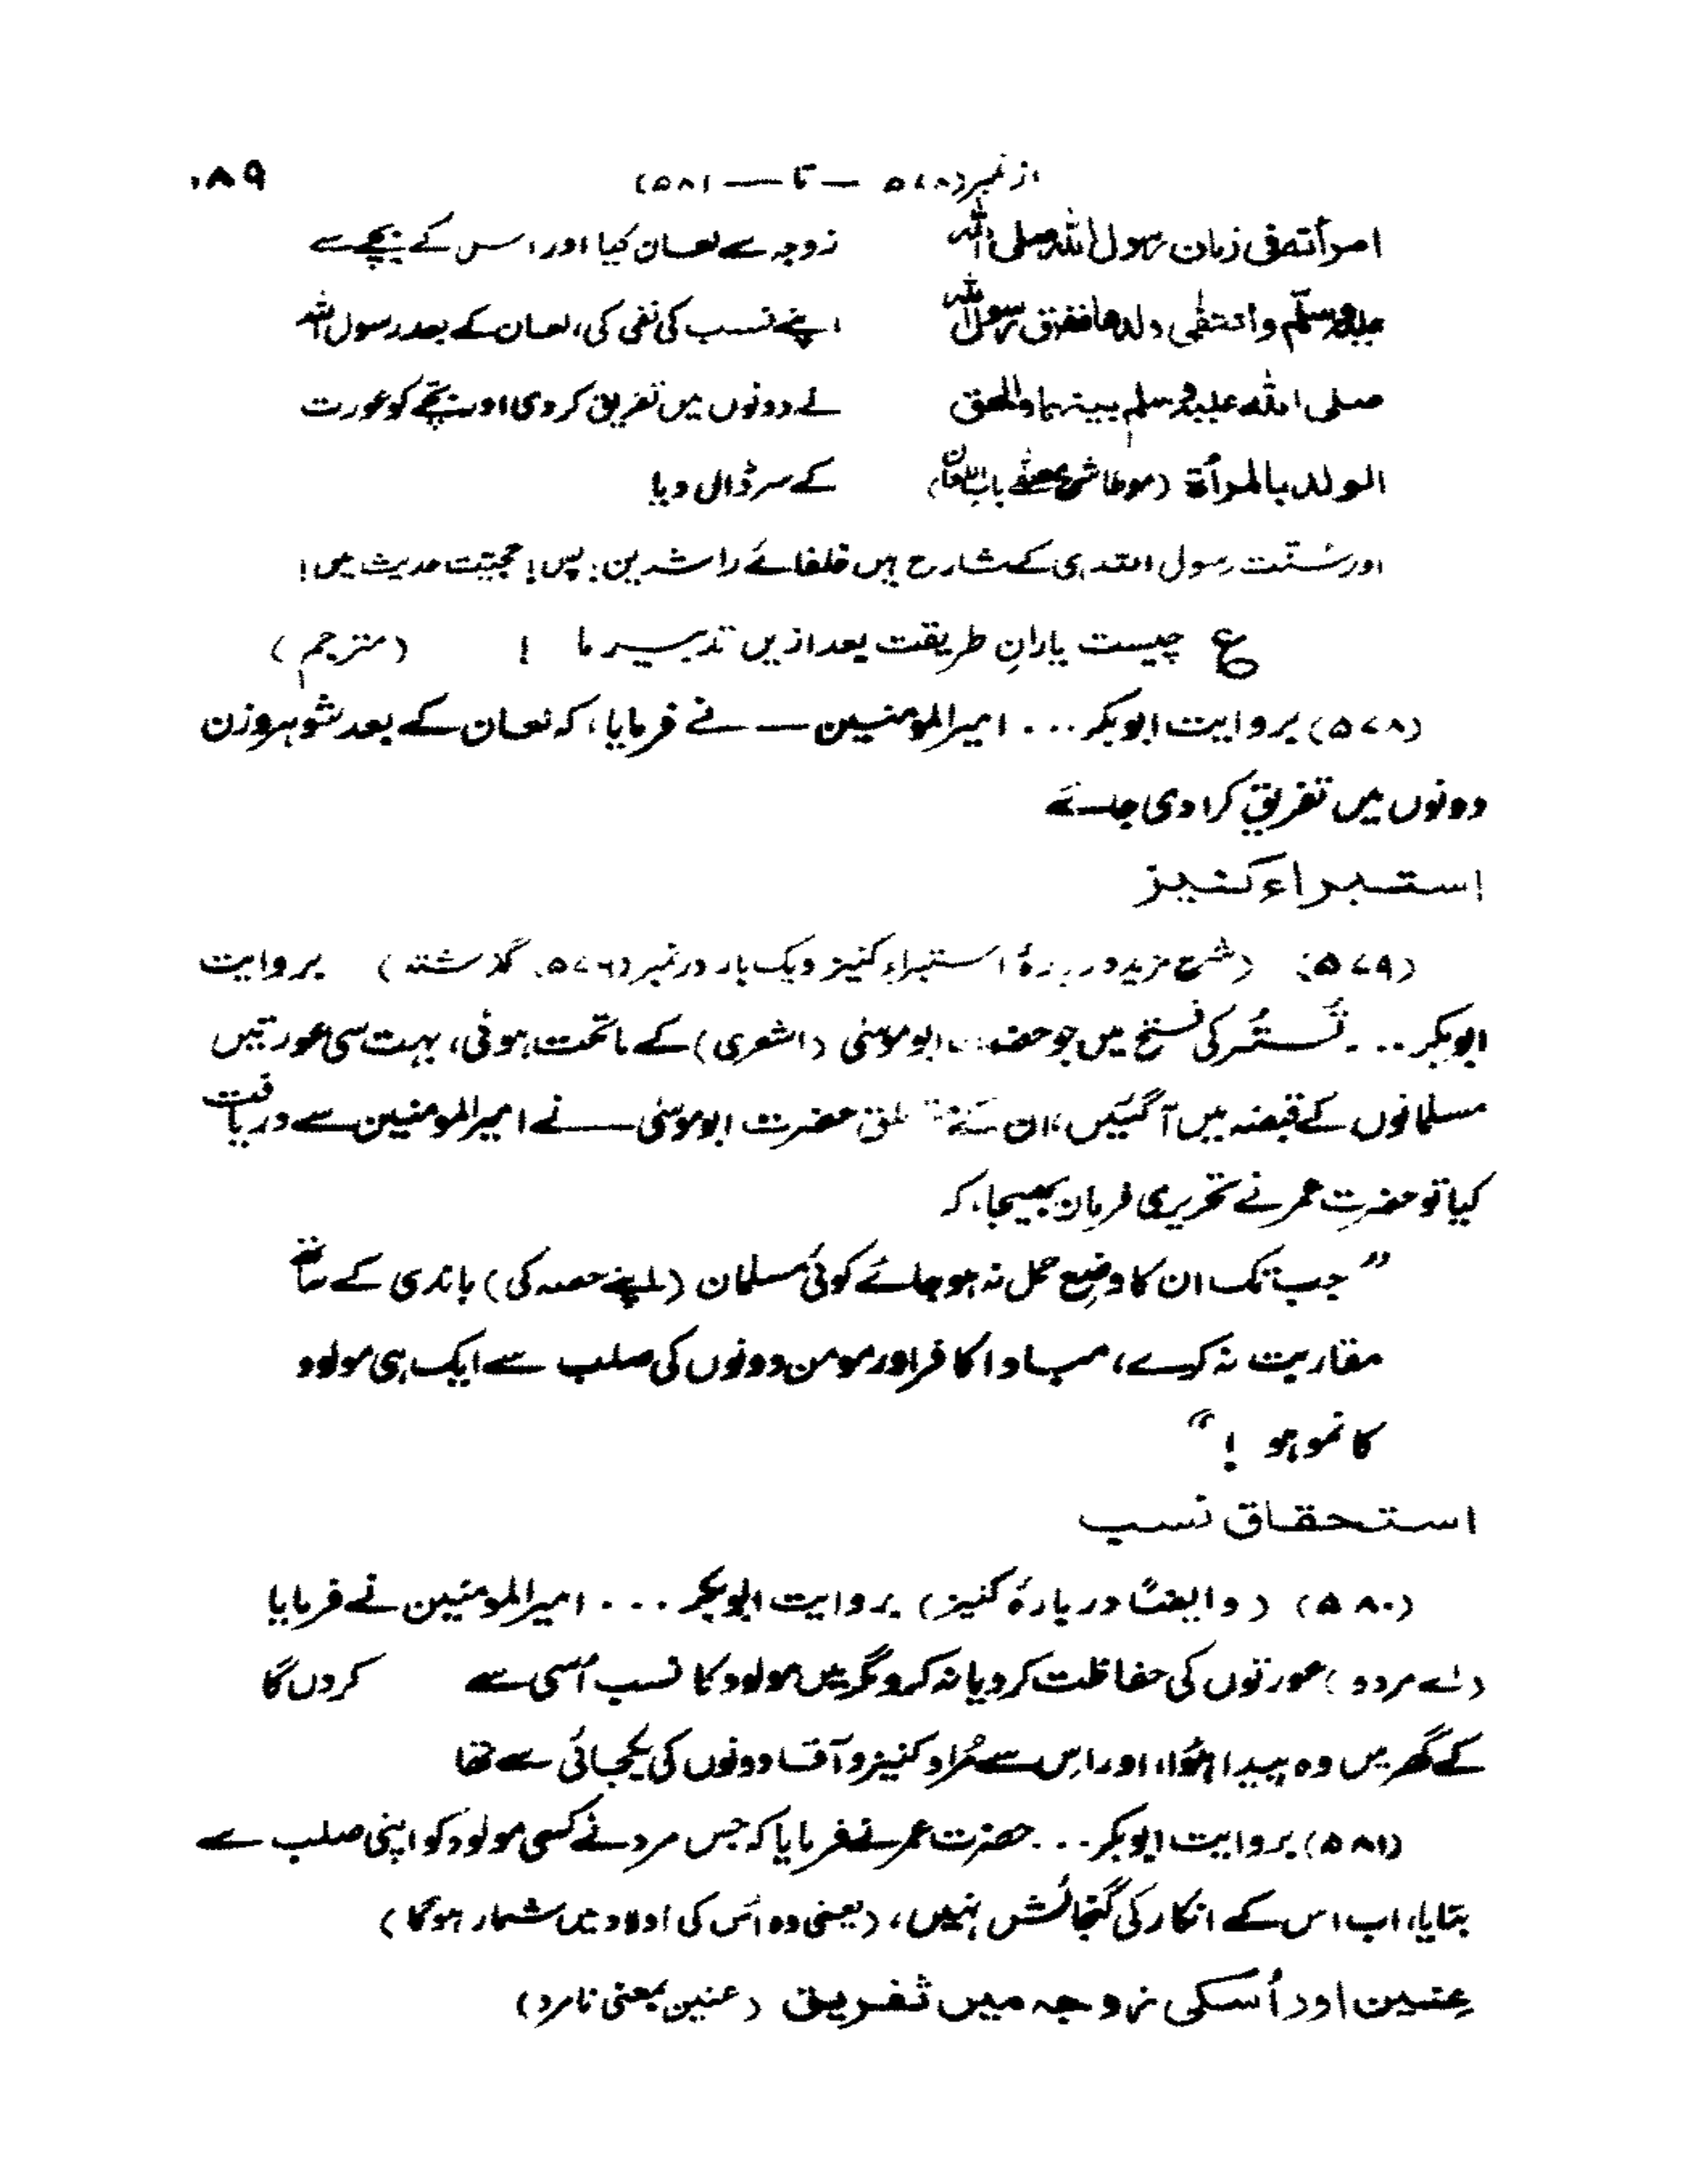 از نمبر (۵۷۸ — تا — ۵۸۱) ۱۸۹
امرأته فی زمان رسول الله صلی الله زوجہ سے لعان کیا اور اس کے بچے سے
علیه وسلّم وانتفی ولدها ففرق رسول الله اپنے نسب کی نفی کی، لعان کے بعد رسول اللہ
صلی الله علیه وسلم بینهما والحق نے دونوں میں تفریق کر دی اور بچے کو عورت
الولد بالمرأة (موطا شرح مصفے باب اللعان) کے سر ڈال دیا
اور سُنّت رسول اللہ ہی کے شارح ہیں خلفائے راشدین: پس! حجیّت حدیث میں!
ع چیست یارانِ طریقت بعد ازیں تدبیر ما ! (مترجم)
(۵۷۸) بروایت ابوبکر ... امیرالمؤمنین — نے فرمایا، کہ لعان کے بعد شوہر و زن
دونوں میں تفریق کرا دی جائے
استبراء کنیز
(۵۷۹) (شرح مزید دربارۂ استبراء کنیز ویک بار در نمبر (۵۷۶) گذشتہ) بروایت
ابوبکر ... تُستُر کی فتح میں جو حضرت ابو موسیٰ (اشعری) کے ماتحت ہوئی، بہت سی عورتیں
مسلمانوں کے قبضہ میں آ گئیں، ان کے متعلق حضرت ابو موسیٰ — نے امیرالمومنین سے دریافت
کیا تو حضرتِ عمر نے تحریری فرمان بھیجا، کہ
”جب تک ان کا وضعِ حمل نہ ہو جائے کوئی مسلمان (اپنے حصہ کی) باندی کے ساتھ
مقاربت نہ کرے، مبادا کافر اور مومن دونوں کی صلب سے ایک ہی مولود
کا نمو ہو !“
استحقاق نسب
(۵۸۰) (وایضًا دربارۂ کنیز) بروایت ابوبکر ... امیرالمومنین نے فرمایا
(اے مردو) عورتوں کی حفاظت کرو یا نہ کرو مگر میں مولود کا نسب اُسی سے کردوں گا
کے گھر میں وہ پیدا ہُوا، اور اِس سے مُراد کنیز و آقا دونوں کی یکجائی سے تھا
(۵۸۱) بروایت ابوبکر ... حضرت عمر نے فرمایا کہ جس مرد نے کسی مولود کو اپنی صلب سے
بتایا، اب اس کے انکار کی گنجائش نہیں، (یعنی وہ اُس کی اولاد میں شمار ہوگا)
عِنین اور اُسکی زوجہ میں تفریق (عنین بمعنی نامرد)